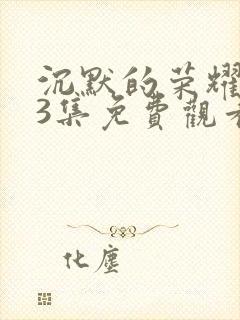 沉默的荣耀
3集免費觀看
化塵